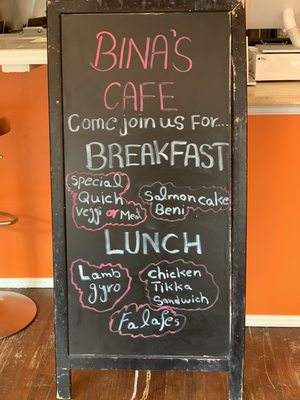 BINA'S
CAFE
Come join us For...
BREAKFAST
Special
Quich
Veggi or Meat
Salmon cake
Beni
LUNCH
Lamb
gyro
Chicken
Tikka
Sandwich
Falafes